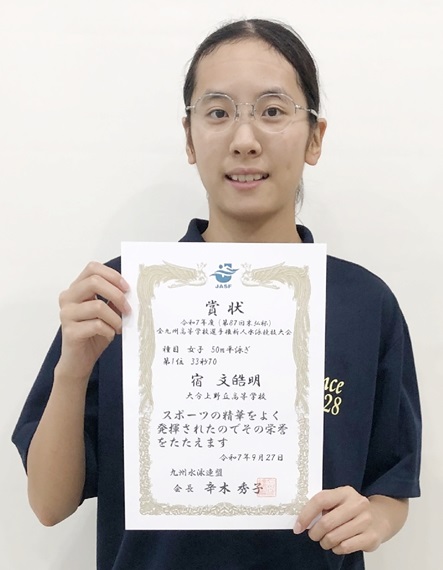 JASF
賞状
令和7年度(第87回末弘杯)
全九州高等学校選手権新人水泳競技大会
種目 女子 50m平泳ぎ
第1位 33秒70
宿 文皓明
大分上野丘高等学校
スポーツの精華をよく
発揮されたのでその栄誉
をたたえます
令和7年9月27日
九州水泳連盟
会長 幸木 秀子
28